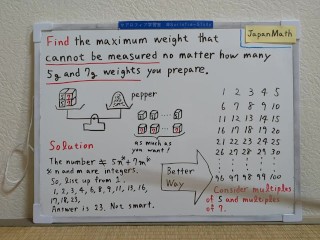 JapanMath
Find the maximum weight that
cannot be measured no matter how many
5g and 7g weights you prepare.
pepper
as much as
you want!
Solution
The number ≠ 5n*+7m*
※ n and m are integers.
So, list up from 1.
1, 2, 3, 4, 6, 8, 9, 11, 13, 16,
17, 18, 23,
Answer is 23. Not smart.
Better
Way
1 2 3 4 5
6 7 8 9 10
11 12 13 14 15
16 17 18 19 20
21 22 23 24 25
26 27 28 29 30
96 97 98 99 100
Consider multiples
of 5 and multiples
of 7.